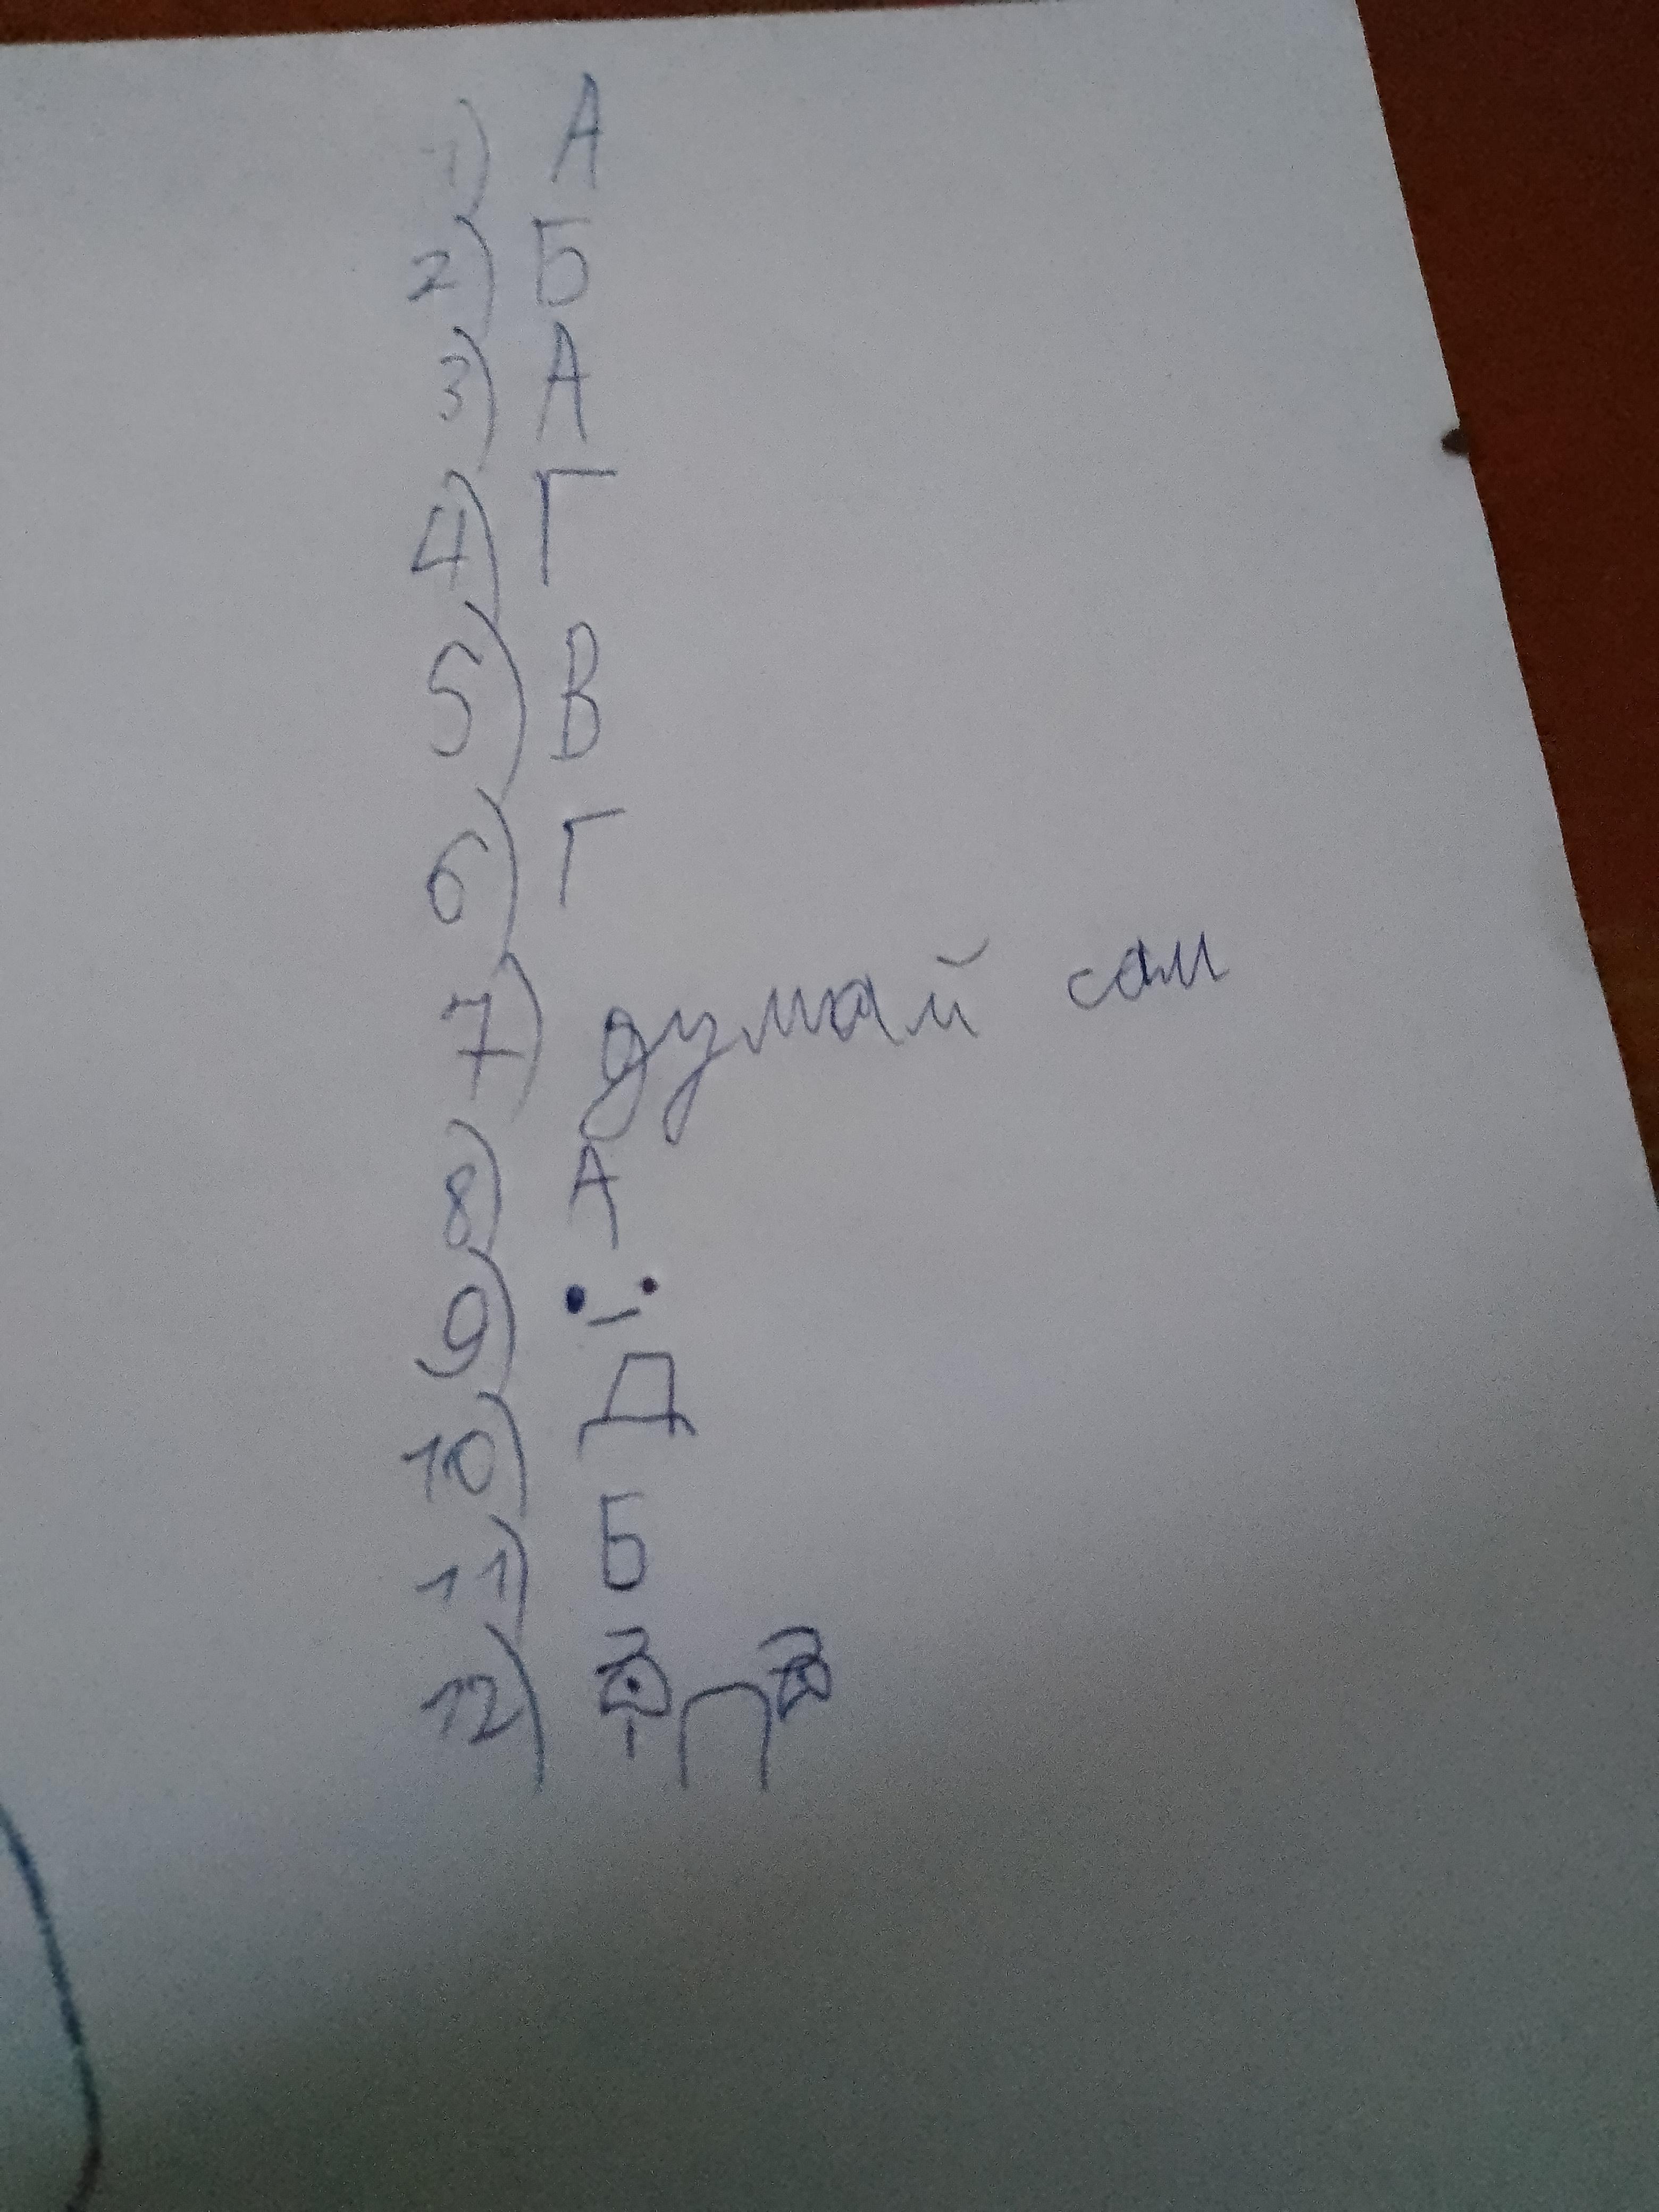 1) А
2) Б
3) А
4) Г
5) В
6) Г
7) думай сам
8) А
9)
10) Д
11) Б
12)